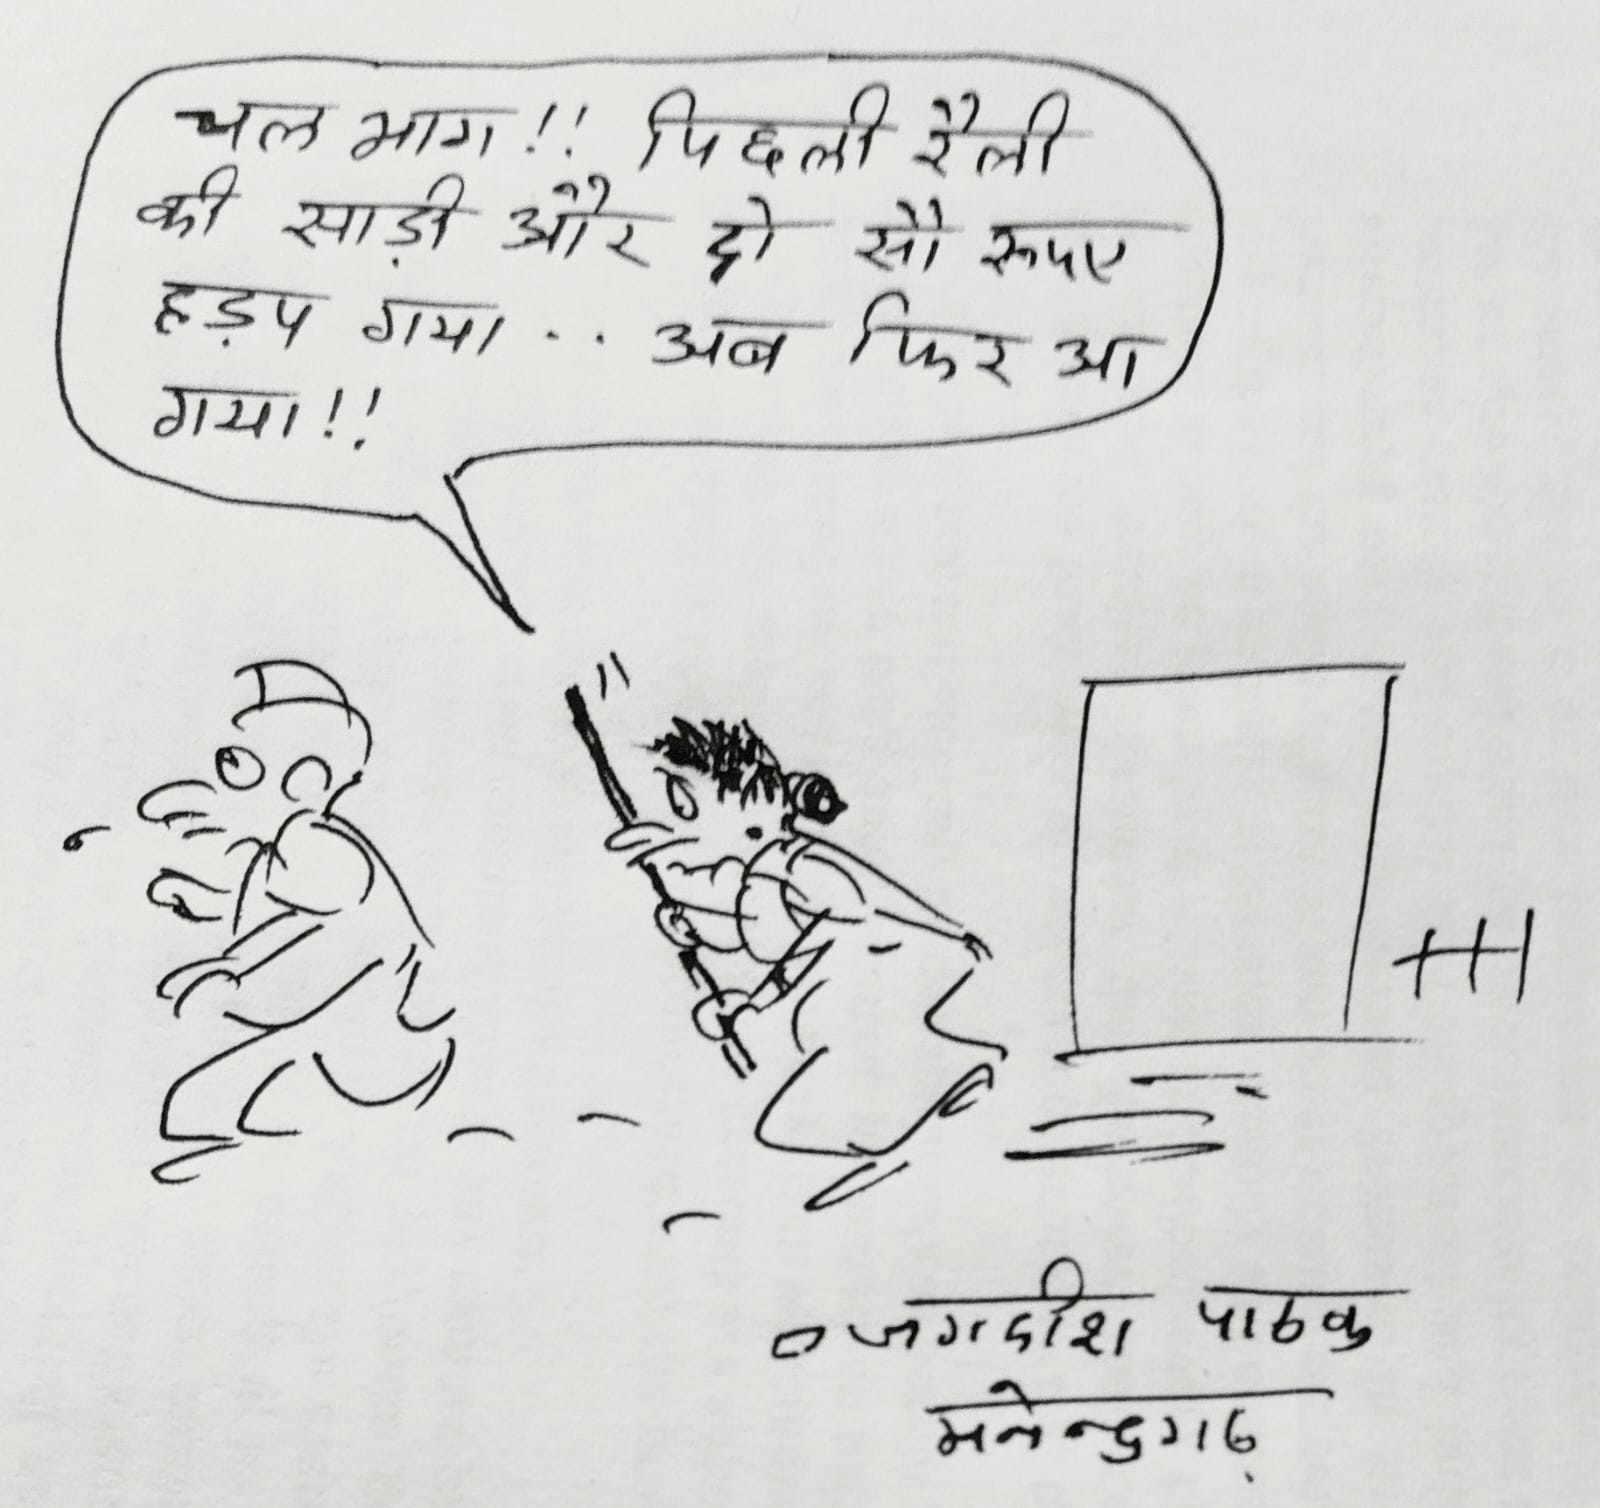 चल भाग!! पिछली रैली
की साड़ी और दो सौ रुपए
हड़प गया .. अब फिर आ
गया!!
जगदीश पाठक
मनेन्द्रगढ़